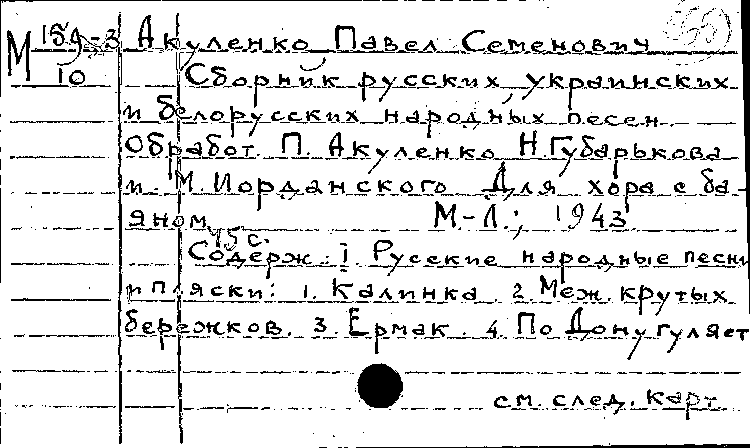 М 159-3 Акуленко, Павел Семенович
10 Сборник русских, украинских
и белорусских народных песен.
Обработ. П. Акуленко, Н. Губарькова
и М. Иорданского. Для хора с ба-
яном.
М.-Л.; 1943.
45 с.
Содерж.: I. Русские народные песни
и пляски: 1. Калинка. 2. Меж крутых
бережков. 3. Ермак. 4. По Дону гуляет
см. след. карт.